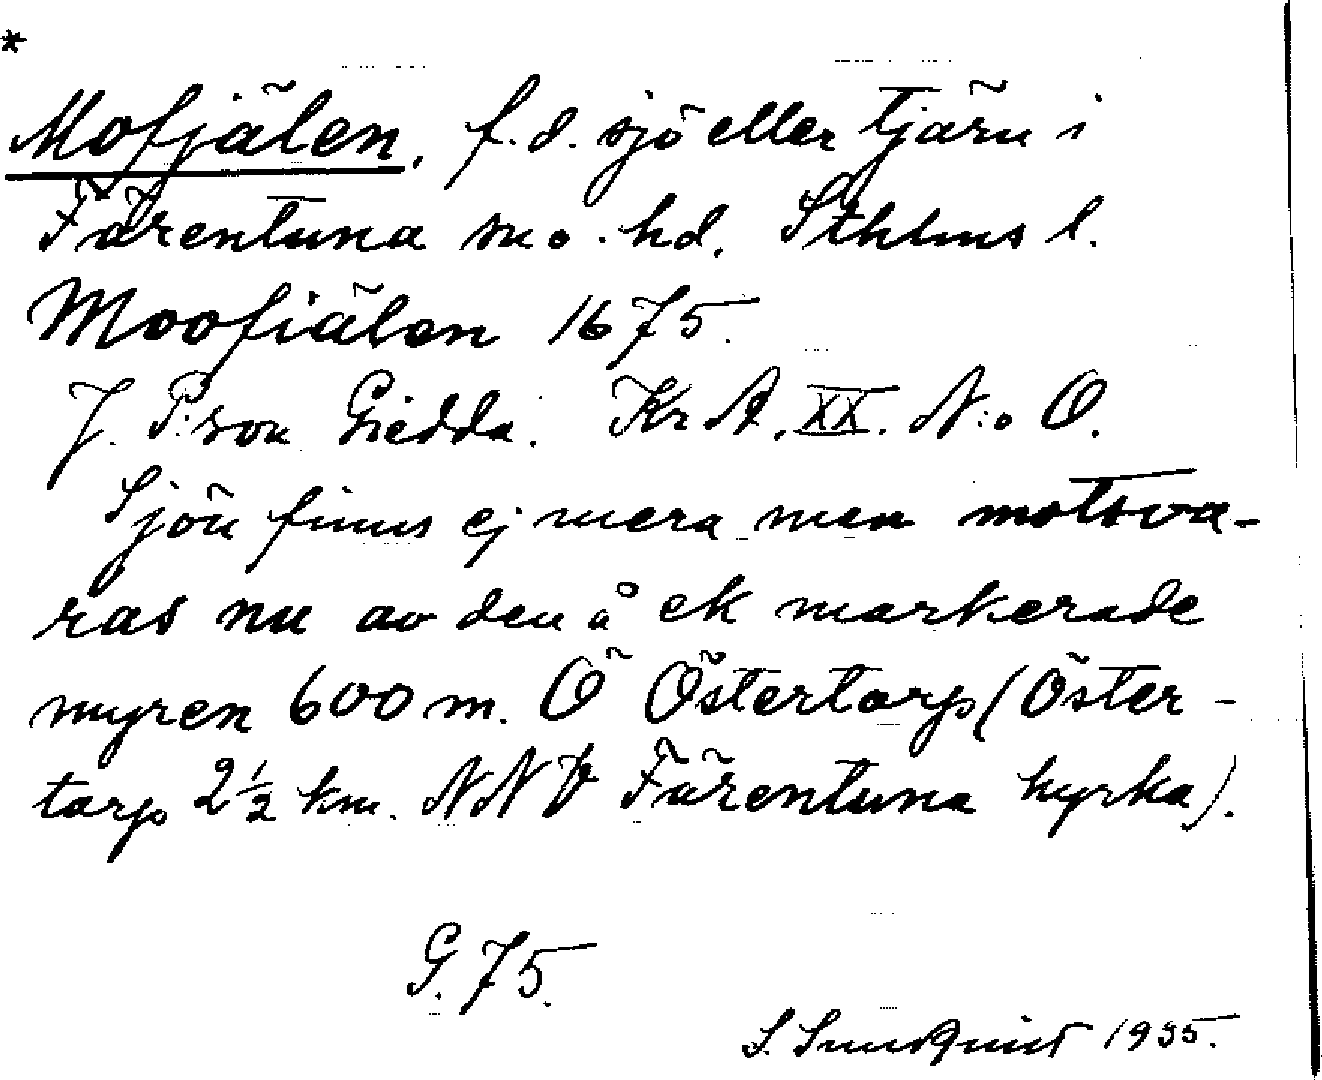 *
Mofjälen. f.d. sjö eller tjärn i
Färentuna sn o. hd. Sthlms l.
Moofiälen 1675.
J. P:son Giedda. Kr A. XX. N:o O.
Sjön finns ej mera men motsva-
ras nu av den å ek markerade
myren 600 m. Ö Östertorp (Öster-
torp 2 1/2 km. NNV Färentuna kyrka).
G. 75.
S. Sundquist 1935.